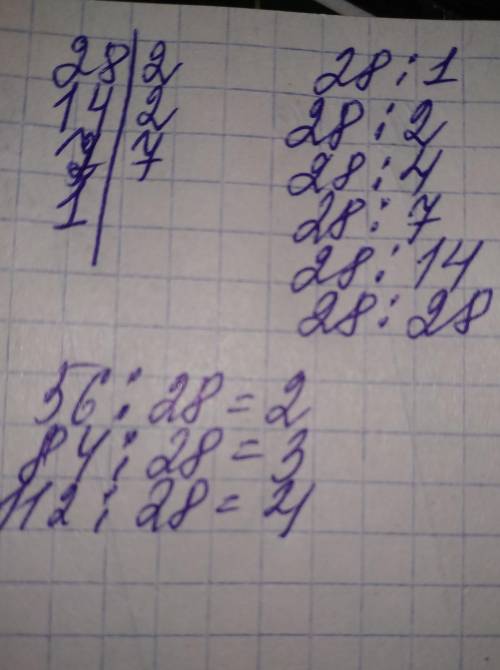 28|2
14|2
7|7
1|
28:1
28:2
28:4
28:7
28:14
28:28
56:28=2
84:28=3
112:28=4